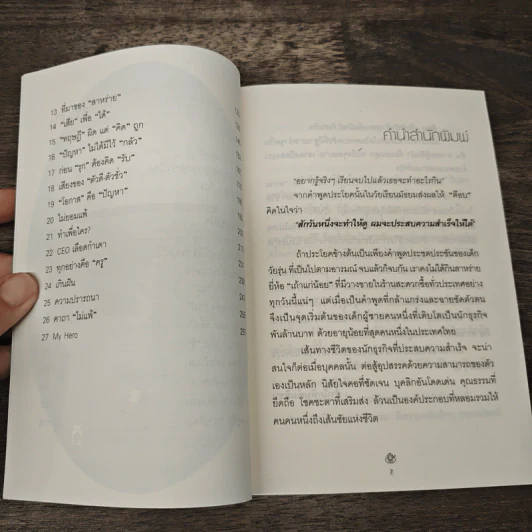 13 ที่มาของ "สาหร่าย"
14 "เสีย" เพื่อ "ได้"
15 "ทฤษฎี" ผิด แต่ "คิด" ถูก
16 "ปัญหา" ไม่ได้มีไว้ "กลัว"
17 ก่อน "รุก" ต้องคิด "รับ"
18 เสียงของ "ตัวดี-ตัวชั่ว"
19 "โอกาส" คือ "ปัญหา"
20 ไม่ยอมแพ้
21 ทำเพื่อใคร?
22 CEO เลือดกำเดา
23 ทุกอย่างคือ "ครู"
24 เกินฝัน
25 ความปรารถนา
26 คาถา "ไม่แพ้"
27 My Hero
คำนำสำนักพิมพ์
"อยากรู้จริงๆ เรียนจบไปแล้วเธอจะทำอะไรกิน"
จากคำพูดประโยคนั้นในวัยเรียนมัธยมส่งผลให้ "ต๊อบ"
คิดในใจว่า
"สักวันหนึ่งจะทำให้ดู ผมจะประสบความสำเร็จให้ได้"
ถ้าประโยคข้างต้นเป็นเพียงคำพูดประชดประชันของเด็ก
วัยรุ่น ที่เป็นไปตามอารมณ์ จนแล้วก็จบกัน เราคงไม่ได้กินสาหร่าย
ยี่ห้อ "เถ้าแก่น้อย" ที่มีวางขายในร้านสะดวกซื้อทั่วประเทศอย่าง
ทุกวันนี้แน่ๆ แต่เมื่อเป็นคำพูดที่กล้าแกร่งและฉายชัดตัวตน
จึงเป็นจุดเริ่มต้นของเด็กผู้ชายคนหนึ่งที่เติบโตเป็นนักธุรกิจ
พันล้านบาท ด้วยอายุน้อยที่สุดคนหนึ่งในประเทศไทย
เส้นทางชีวิตของนักธุรกิจที่ประสบความสำเร็จ จะน่า
สนใจก็ต่อเมื่อบุคคลนั้น ต่อสู้อุปสรรคด้วยความสามารถของตัว
เองเป็นหลัก นิสัยใจคอที่ชัดเจน บุคลิกอันโดดเด่น คุณธรรมที่
ยึดถือ โชคชะตาที่เสริมส่ง ล้วนเป็นองค์ประกอบที่หลอมรวมให้
คนคนหนึ่งถึงเส้นชัยแห่งชีวิต